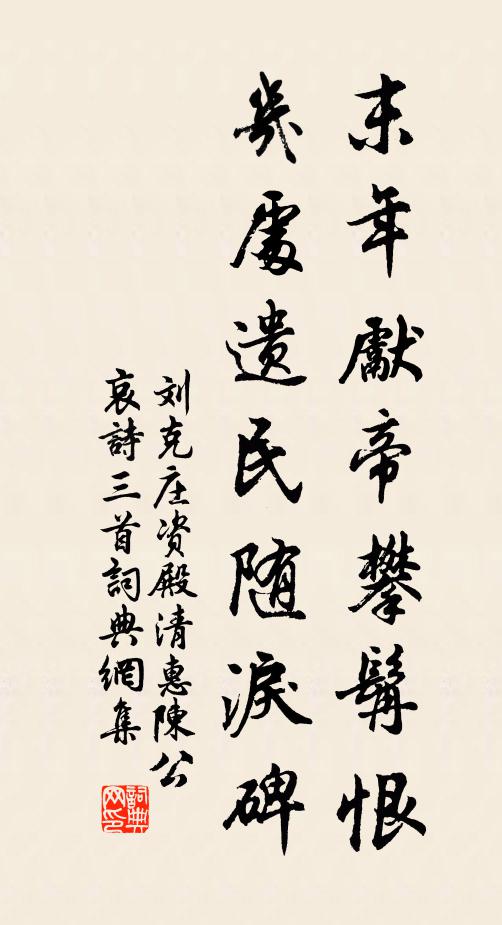 末年獻帝攀髯恨
幾處遺民随淚碑
刘克庄资殿清惠陳公
哀詩三首詞典網集
詞典
网印